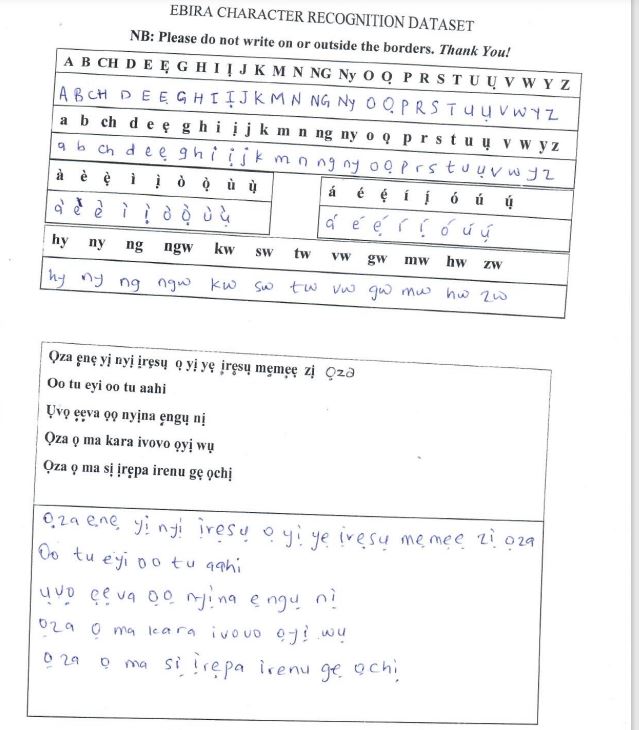 EBIRA CHARACTER RECOGNITION DATASET
NB: Please do not write on or outside the borders. Thank You!
A B CH D E Ẹ G H I Ị J K M N NG Ny O Ọ P R S T U Ụ V W Y Z
A B CH D E Ẹ G H I Ị J K M N NG Ny O Ọ P R S T U Ụ V W Y Z
a b ch d e ẹ g h i ị j k m n ng ny o ọ p r s t u ụ v w y z
a b ch d e ẹ g h i ị j k m n n ng ny o ọ p r s t u ụ v w y z
à è ẹ̀ ì ị̀ ò ọ̀ ù ụ̀
á é ẹ́ í ị́ ó ú ụ́
à è ẹ̀ ì ị̀ ò ọ̀ ù ụ̀
á é ẹ́ í ị́ ó ú ụ́
hy ny ng ngw kw sw tw vw gw mw hw zw
hy ny ng ngw kw sw tw vw gw mw hw zw
Ọza ẹnẹ yị nyị ịrẹsụ ọ yị yẹ ịrẹsụ mẹmẹẹ zị Ọza
Oo tu eyi oo tu aahi
Ụvọ ẹẹva ọọ nyịna ẹngụ nị
Ọza ọ ma kara ivovo ọyị wụ
Ọza ọ ma sị ịrẹpa irenu gẹ ọchị
Ọza ẹnẹ yị nyị ịrẹsụ ọ yị yẹ ịrẹsụ mẹmẹẹ zị ọza
Oo tu eyi oo tu aahi
ụvọ ẹẹva ọọ nyịna ẹngụ nị
ọza ọ ma kara ivovo ọyị wụ
ọza ọ ma sị ịrẹpa irenu gẹ ọchị